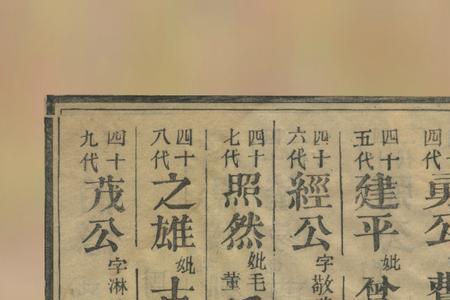 四十
五代
建平
妣
四十
六代
經公
字敬
四十
七代
照然
妣毛
董
四十
八代
之雄
妣
四十
九代
茂公
字淋